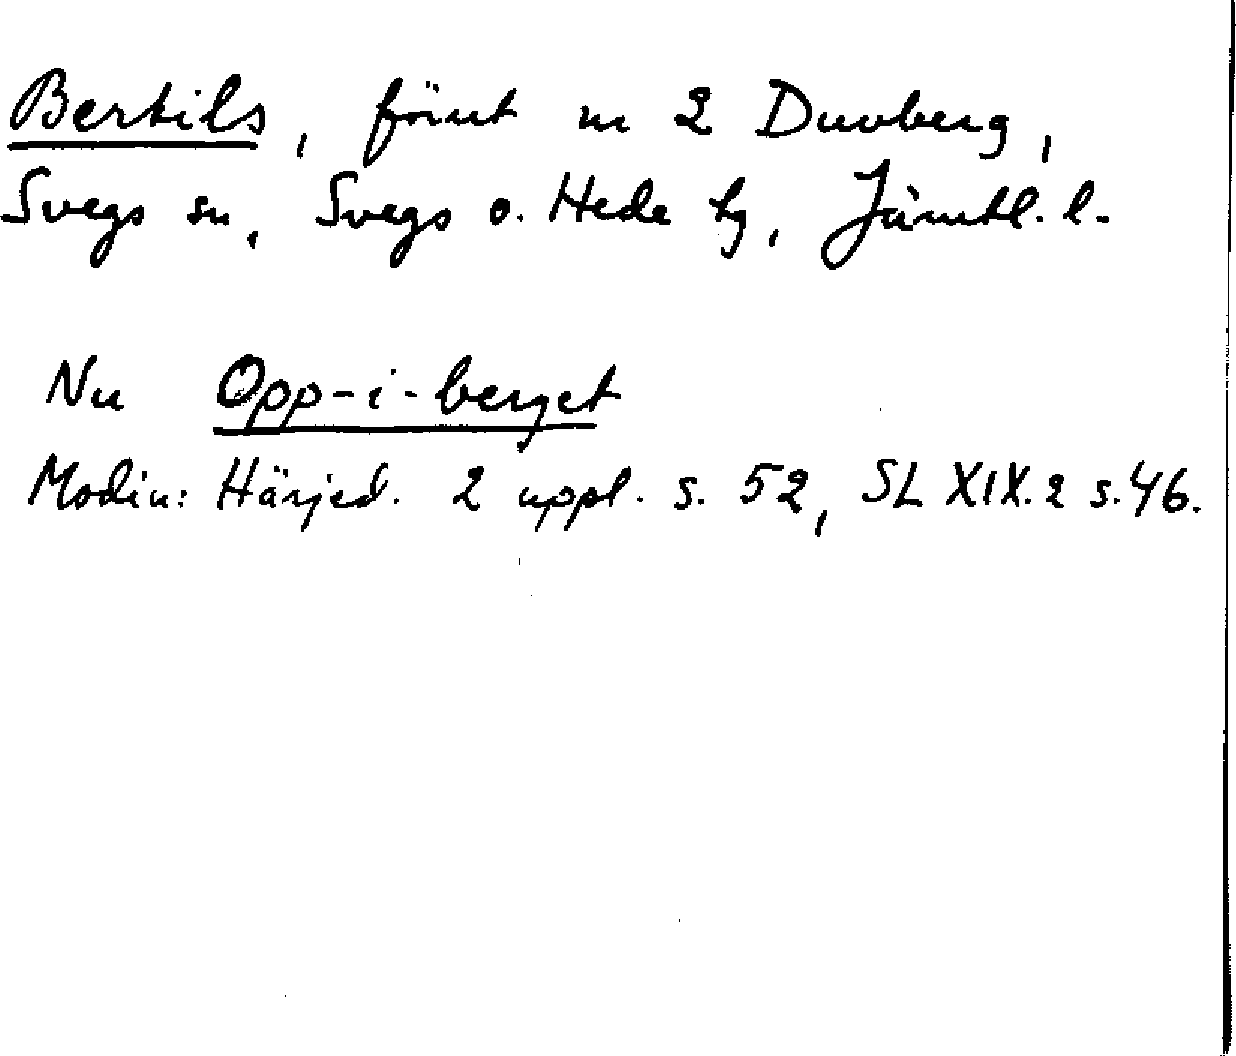 Bertils, förut nr 2 Duvberg,
Svegs sn, Svegs o. Hede tg, Jämtl. l.
Nu Opp-i-berget
Modin: Härjed. 2 uppl. s. 52, SL XIX.2 s.46.